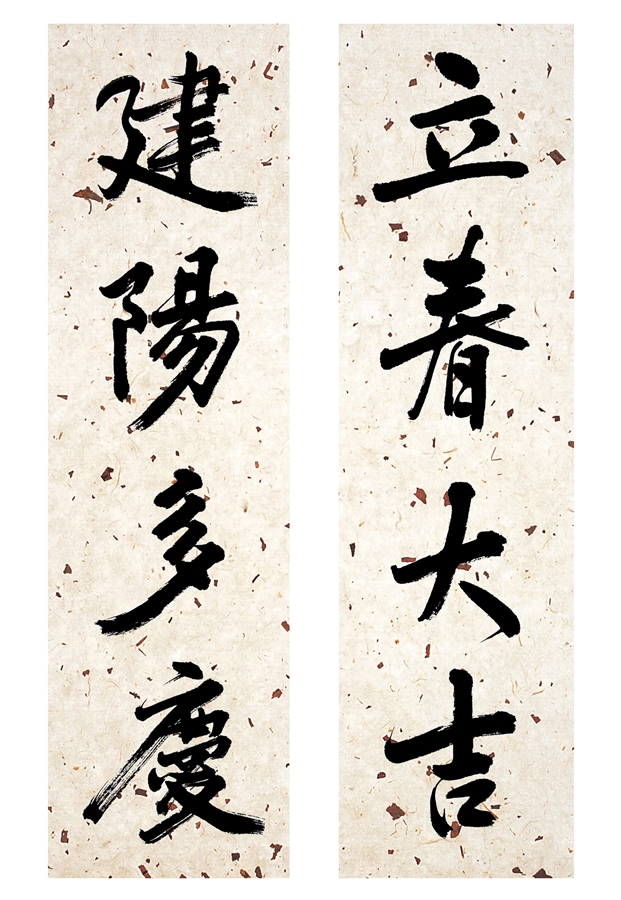 立春大吉
建陽多慶